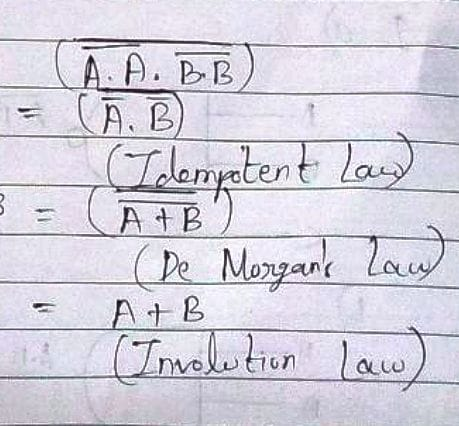 (A̅.̅A̅ . B̅.̅B̅)
= (A̅ . B̅)
(Idempotent Law)
= (A + B)
(De Morgan's Law)
= A + B
(Involution Law)